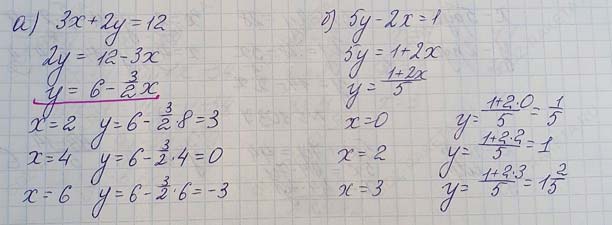 а) 3x+2y=12
2y = 12-3x
y = 6 - 3/2 x
x=2 y=6 - 3/2 · 8 = 3
x=4 y=6 - 3/2 · 4 = 0
x=6 y=6 - 3/2 · 6 = -3
б) 5y-2x=1
5y = 1+2x
y = 1+2x/5
x=0 y= 1+2·0/5 = 1/5
x=2 y= 1+2·2/5 = 1
x=3 y= 1+2·3/5 = 1 2/5